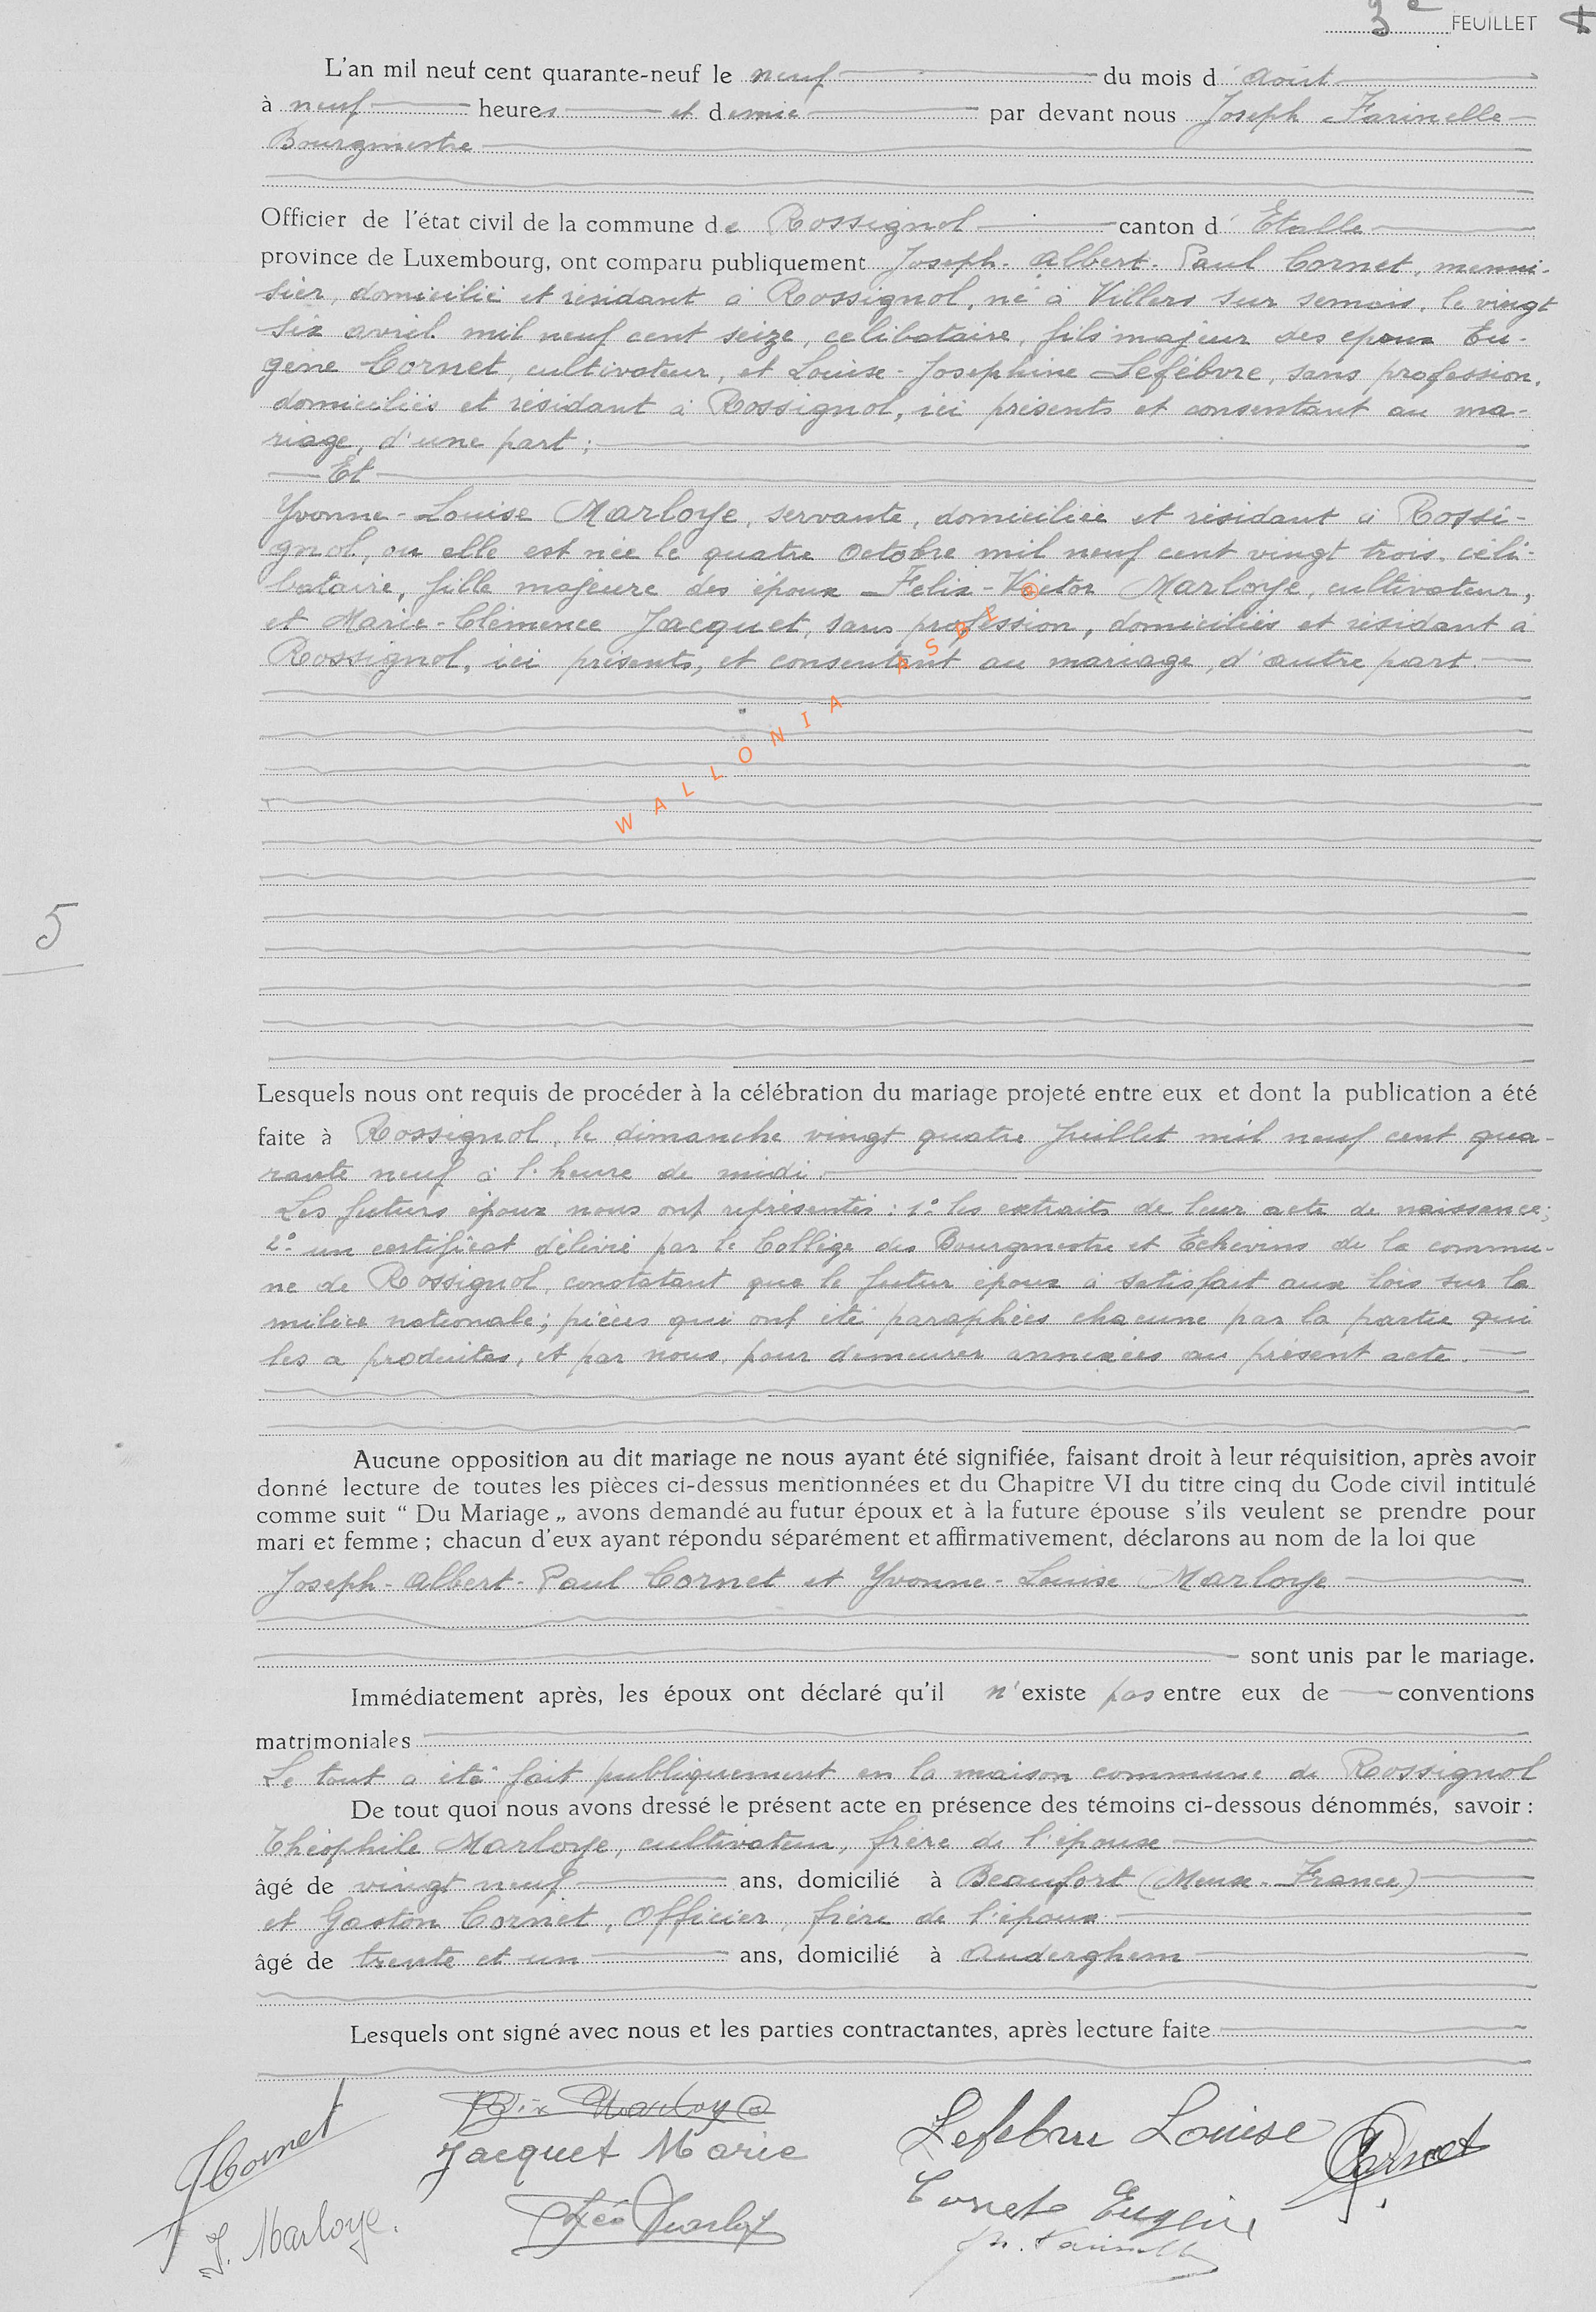 3e FEUILLET
L'an mil neuf cent quarante-neuf le neuf du mois d'août
à neuf heures et demie par devant nous Joseph Farinelle
Bourgmestre
Officier de l'état civil de la commune de Rossignol canton d'Etalle
province de Luxembourg, ont comparu publiquement Joseph-Albert-Paul Cornet, menui-
sier, domicilié et résidant à Rossignol, né à Villers sur semois, le vingt
six avril mil neuf cent seize, célibataire, fils majeur des epoux Eu-
gène Cornet, cultivateur, et Louise-Joséphine Lefèbvre, sans profession,
domiciliés et résidant à Rossignol, ici présents et consentant au ma-
riage, d'une part ;
Et
Yvonne-Louise Marloye, servante, domiciliée et résidant à Rossi-
gnol, ou elle est née le quatre Octobre mil neuf cent vingt trois, céli-
bataire, fille majeure des époux Felix-Victor Marloye, cultivateur,
et Marie-Clémence Jacquet, sans profession, domiciliés et résidant à
Rossignol, ici présents, et consentant au mariage, d'autre part.
WALLONIA ASBL @
5
Lesquels nous ont requis de procéder à la célébration du mariage projeté entre eux et dont la publication a été
faite à Rossignol, le dimanche vingt quatre Juillet mil neuf cent qua-
rante neuf à l'heure de midi.
Les futurs époux nous ont représentés : 1° les extraits de leur acte de naissance;
2° un certificat délivré par le Collège des Bourgmestre et Echevins de la commu-
ne de Rossignol, constatant que le futur époux à satisfait aux lois sur la
milice nationale; pièces qui ont été paraphées chacune par la partie qui
les a produites, et par nous, pour demeurer annexées au présent acte.
Aucune opposition au dit mariage ne nous ayant été signifiée, faisant droit à leur réquisition, après avoir
donné lecture de toutes les pièces ci-dessus mentionnées et du Chapitre VI du titre cinq du Code civil intitulé
comme suit “ Du Mariage „ avons demandé au futur époux et à la future épouse s'ils veulent se prendre pour
mari et femme ; chacun d'eux ayant répondu séparément et affirmativement, déclarons au nom de la loi que
Joseph-Albert-Paul Cornet et Yvonne-Louise Marloye
sont unis par le mariage.
Immédiatement après, les époux ont déclaré qu'il n'existe pas entre eux de conventions
matrimoniales
Le tout a été fait publiquement en la maison commune de Rossignol
De tout quoi nous avons dressé le présent acte en présence des témoins ci-dessous dénommés, savoir :
Théophile Marloye, cultivateur, frère de l'épouse
âgé de vingt neuf ans, domicilié à Beaufort (Meuse-France)
et Gaston Cornet, Officier, frère de l'époux
âgé de trente et un ans, domicilié à Auderghem
Lesquels ont signé avec nous et les parties contractantes, après lecture faite
JCornet
Marloye
Jacquet Marie
Lefebvre Louise
Cornet
Y. Marloye.
Théo Marloye
Cornet Eugène